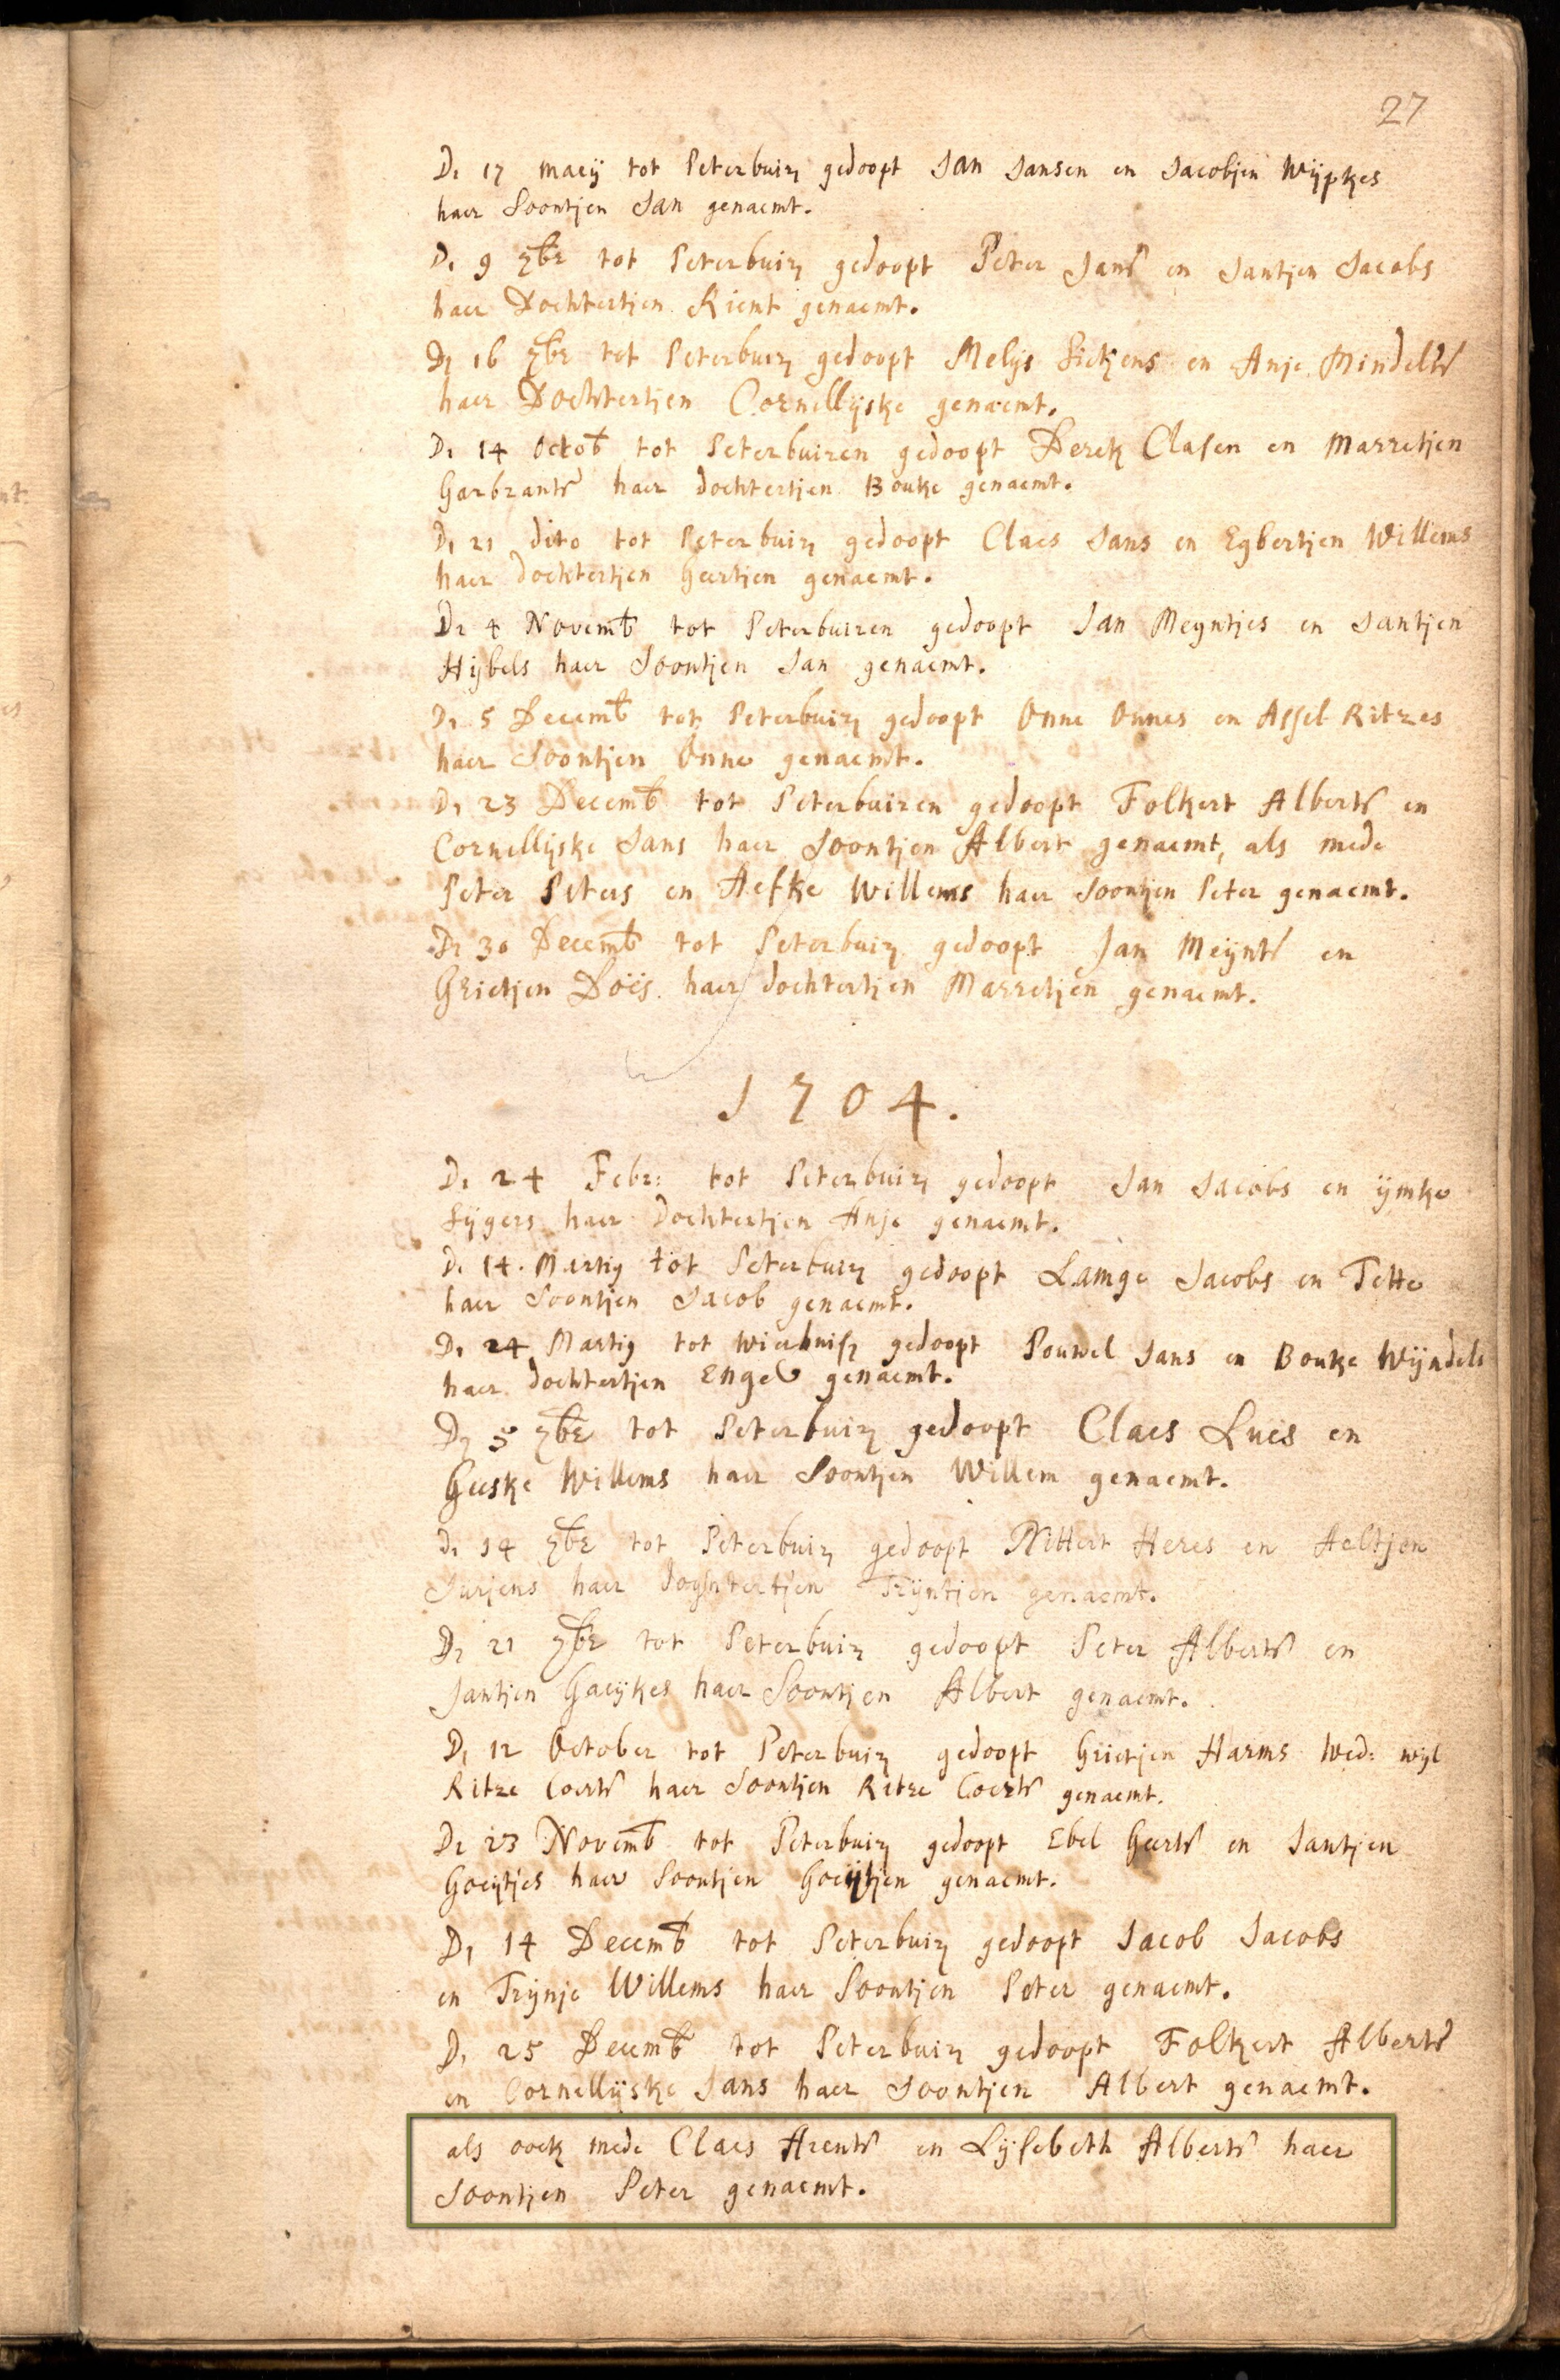 27
D. 17 maeÿ tot Peterbuirē gedoopt Jan Jansen en Jacobjen Wÿpkes
haer Soontjen Jan genaemt.
D. 9 7bre tot Peterbuirē gedoopt Peter Jans en Jantjen Jacobs
haer Dochtertjen Rient genaemt.
D. 16 7bre tot Peterbuirē gedoopt Melÿs Sickens en Anje Mindelts
haer Dochtertjen Cornellÿske genaemt.
D. 14 Octob tot Peterbuiren gedoopt Derck Clasen en Marretjen
Garbrants haer dochtertjen Bouke genaemt.
D. 21 dito tot Peterbuirē gedoopt Claes Jans en Egbertjen Willems
haer dochtertjen Geertjen genaemt.
D. 4 Novemb tot Peterbuiren gedoopt Jan Meyntjes en Jantjen
Hÿbels haer Soontjen Jan genaemt.
D. 5 Decemb tot Peterbuirē gedoopt Onne Onnes en Assel Ritzes
haer Soontjen Onno genaemt.
D. 23 Decemb tot Peterbuiren gedoopt Folkert Alberts en
Cornellÿske Jans haer Soontjen Albert genaemt, als mede
Peter Peters en Aefke Willems haer Soontjen Peter genaemt.
D. 30 Decemb tot Peterbuirē gedoopt Jan Meÿnts en
Grietjen Doës haer dochtertjen Marretjen genaemt.
1704.
D. 24 Febr: tot Peterbuirē gedoopt Jan Jacobs en ÿmke
Sÿgers haer Dochtertjen Anje genaemt.
D. 14. Martiÿ tot Peterbuirē gedoopt Lamge Jacobs en Tette
haer Soontjen Jacob genaemt.
D. 24 Martiÿ tot Wierhuisē gedoopt Pouwel Jans en Bouke Wÿndels
haer dochtertjen Engel genaemt.
D. 5 7bre tot Peterbuirē gedoopt Claes Lues en
Geeske Willems haer Soontjen Willem genaemt.
D. 14 7bre tot Peterbuirē gedoopt Nittert Heres en Aeltjen
Jurjens haer dochtertjen Trÿntjen genaemt.
D. 21 7bre tot Peterbuirē gedoopt Peter Alberts en
Jantjen Gaeÿkes haer Soontjen Albert genaemt.
D. 12 October tot Peterbuirē gedoopt Grietjen Harms Wed: wÿl
Ritze Coerts haer Soontjen Ritze Coerts genaemt.
D. 23 Novemb tot Peterbuirē gedoopt Ebel Geerts en Jantjen
Goeÿtjes haer Soontjen Goeÿtjen genaemt.
D. 14 Decemb tot Peterbuirē gedoopt Jacob Jacobs
en Trÿnje Willems haer Soontjen Peter genaemt.
D. 25 Decemb tot Peterbuirē gedoopt Folkert Alberts
en Cornellÿske Jans haer Soontjen Albert genaemt.
als oock mede Claes Arents en Lÿsebeth Alberts haer
Soontjen Peter genaemt.